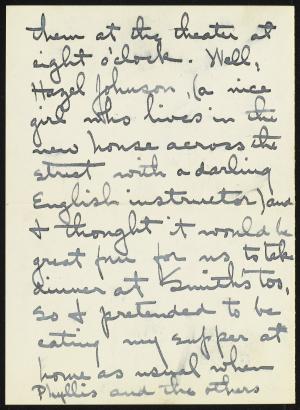 them at the theater at
eight o'clock. Well,
Hazel Johnson, (a nice
girl who lives in the
new house across the
street with a darling
English instructor) and
I thought it would be
great fun for us, to take
dinner at Smiths' too,
So I pretended to be
eating my supper at
home as usual when
Phyllis and the others